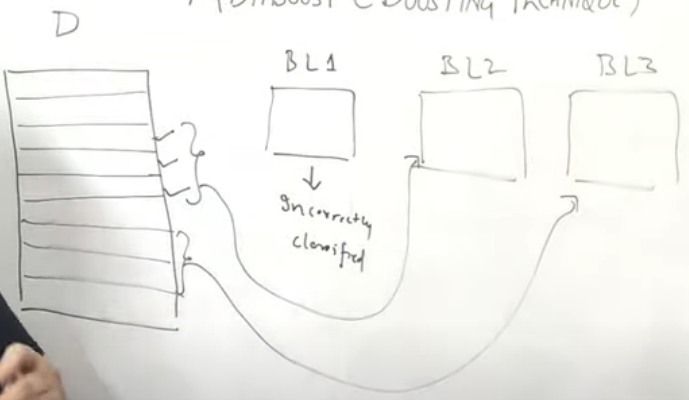 (BOOSTING TECHNIQUE)
D
BL1
BL2
BL3
Incorrectly
classified